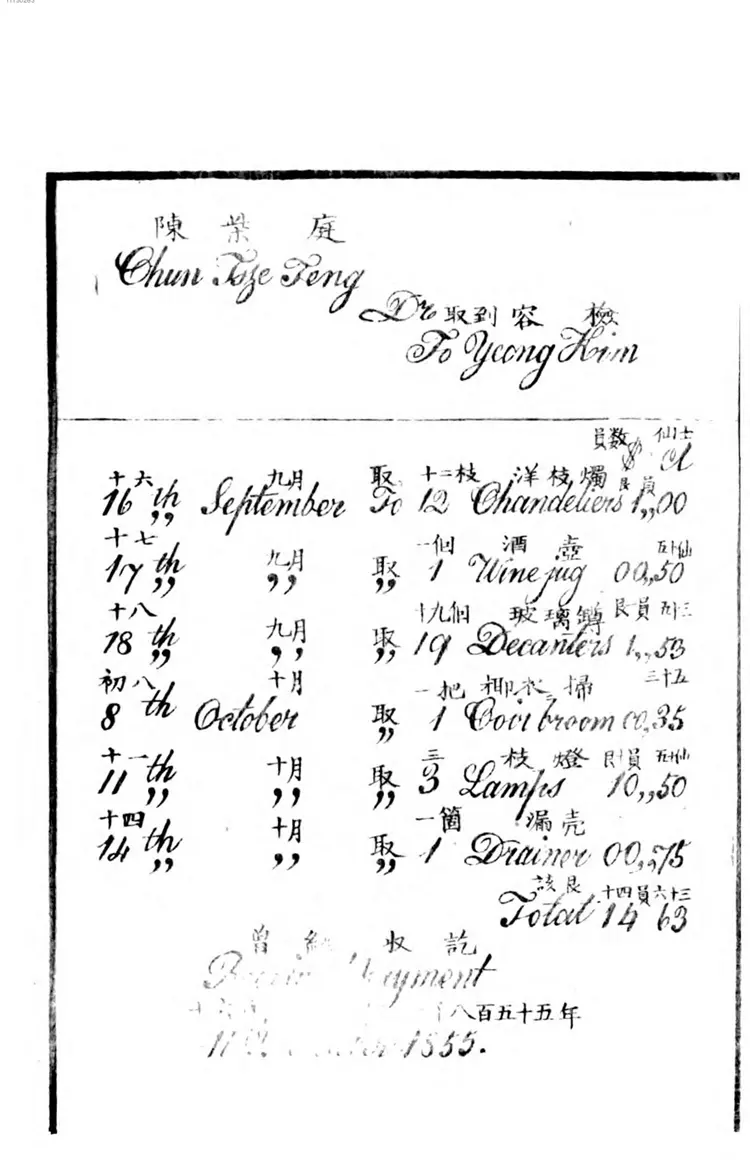 陳 榮 庭
Chun Tsze Teng
Dr 取到 容 檢
To Yeong Kim
員数 仙士
$ ct
十六 九月 取 十二枝 洋枝燭 艮員
16 th ,, September To 12 Chandeliers 1,,00
十七 九月 一個 酒壺 五十仙
17 th ,, ,, 取 ,, 1 Wine jug 00,,50
十八 九月 十九個 玻璃罇 艮員 五十三
18 th ,, ,, 取 ,, 19 Decanters 1,,53
初八 十月 一把 椰衣掃 三十五
8 th October 取 ,, 1 broom 00,35
十一 十月 三 枝燈 艮十員 五十仙
11 th ,, ,, 取 ,, 3 Lamps 10,,50
十四 十月 一箇 漏壳
14 th ,, ,, 取 ,, 1 Drainer 00,,75
該艮 十四員六十三
Total 14 63
曾 收 訖
Payment
八百五十五年
1855.